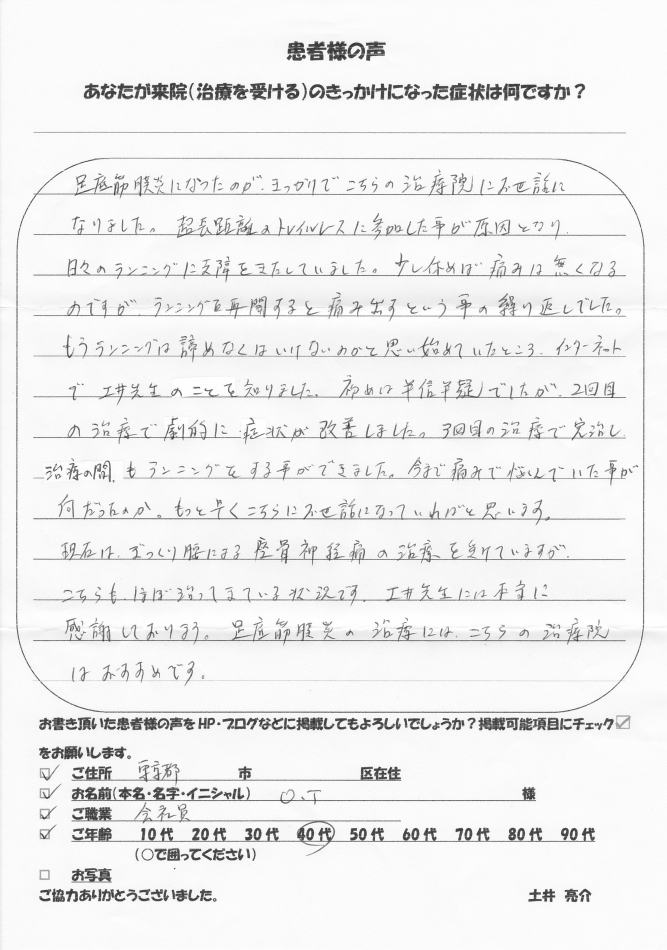 患者様の声
あなたが来院(治療を受ける)のきっかけになった症状は何ですか？
足底筋膜炎になったのが、きっかけでこちらの治療院にお世話に
なりました。超長距離のトレイルレースに参加した事が原因となり、
日々のランニングに支障をきたしていました。少し休めば痛みは無くなる
のですが、ランニングを再開すると痛み出すという事の繰り返しでした。
もうランニングは諦めなくてはいけないのかと思い始めていたところ、インターネット
で土井先生のことを知りました。初めは半信半疑でしたが、2回目
の治療で劇的に症状が改善しました。3回目の治療で完治し、
治療の間、もランニングをする事ができました。今まで痛みで悩んでいた事が
何だったのか。もっと早くこちらにお世話になっていればと思います。
現在は、ぎっくり腰による坐骨神経痛の治療を受けていますが、
こちらも、ほぼ治ってきている状況です。土井先生には本当に
感謝しております。足底筋膜炎の治療には、こちらの治療院
はおすすめです。
お書き頂いた患者様の声をHP・ブログなどに掲載してもよろしいでしょうか？掲載可能項目にチェック☑
をお願いします。
☑ ご住所 東京都 市 区在住
☑ お名前(本名・名字・イニシャル) O.T 様
☑ ご職業 会社員
☑ ご年齢 10代 20代 30代 40代 50代 60代 70代 80代 90代
(○で囲ってください)
□ お写真
ご協力ありがとうございました。 土井 亮介